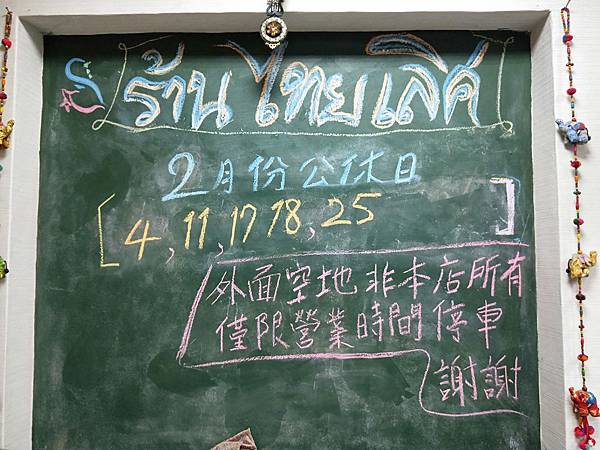 ร้านไทยเลิศ
2月份公休日
[4, 11, 17 18, 25]
外面空地非本店所有
僅限營業時間停車
謝謝